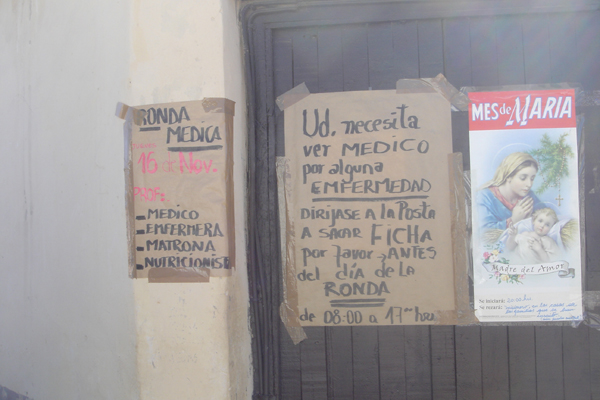 RONDA
MEDICA
16 de Nov.
PROF:
- MEDICO
- ENFERMERA
- MATRONA
- NUTRICIONIST
Ud. necesita
ver MEDICO
por alguna
ENFERMEDAD
DIRIJASE A la Posta
A SACAR FICHA
por favor ANTES
del día de la
RONDA
de 08:00 a 17 hrs
MES de MARIA
Madre del Amor